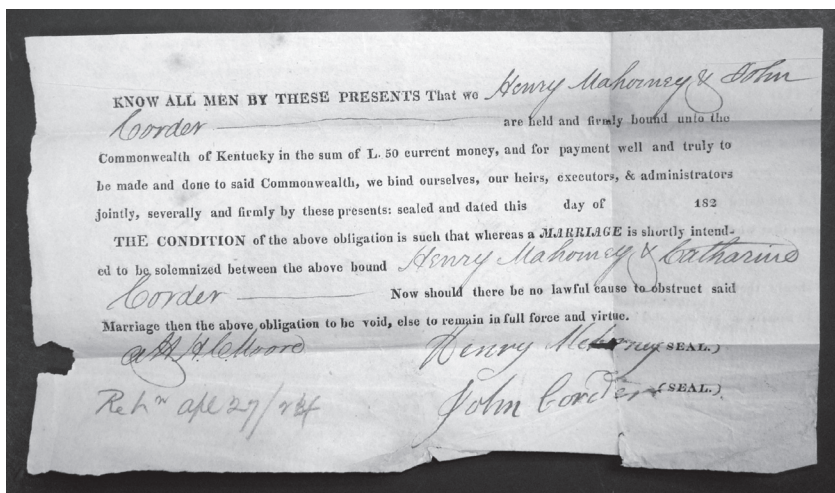 KNOW ALL MEN BY THESE PRESENTS That we Henry Mahorney & John
Corder are held and firmly bound unto the
Commonwealth of Kentucky in the sum of L. 50 current money, and for payment well and truly to
be made and done to said Commonwealth, we bind ourselves, our heirs, executors, & administrators
jointly, severally and firmly by these presents: sealed and dated this day of 182
THE CONDITION of the above obligation is such that whereas a MARRIAGE is shortly intend-
ed to be solemnized between the above bound Henry Mahorney & Catharine
Corder Now should there be no lawful cause to obstruct said
Marriage then the above obligation to be void, else to remain in full force and virtue.
Moore Henry (SEAL.)
John Corder (SEAL.)
Retn apl 27/24